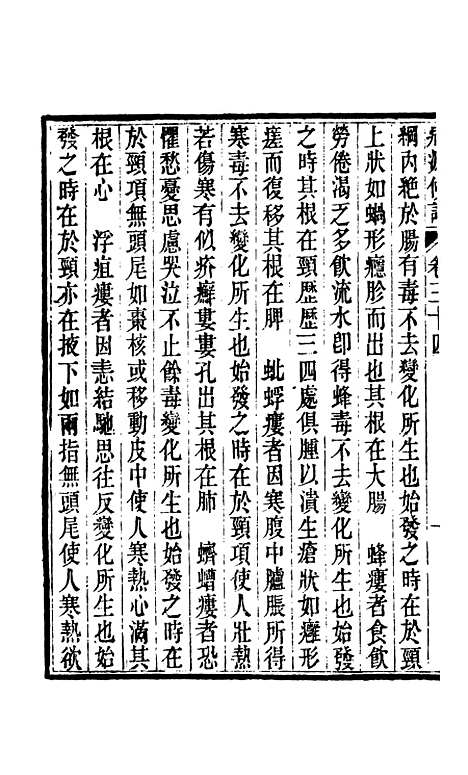 病源候論 卷三十四 一
綱內絶於腸有毒不去變化所生也始發之時在於頸
上狀如蝸形癮胗而出也其根在大腸 蜂瘻者食飮
勞倦渴乏多飮流水卽得蜂毒不去變化所生也始發
之時其根在頸歷歷三四處俱腫以潰生瘡狀如癰形
瘥而復移其根在脾 蚍蜉瘻者因寒腹中臚脹所得
寒毒不去變化所生也始發之時在於頸項使人壯熱
若傷寒有似疥癬婁婁孔出其根在肺 蠐螬瘻者恐
懼愁憂思慮哭泣不止餘毒變化所生也始發之時在
於頸項無頭尾如棗核或移動皮中使人寒熱心滿其
根在心 浮疽瘻者因恚結馳思往反變化所生也始
發之時在於頸亦在掖下如兩指無頭尾使人寒熱欲